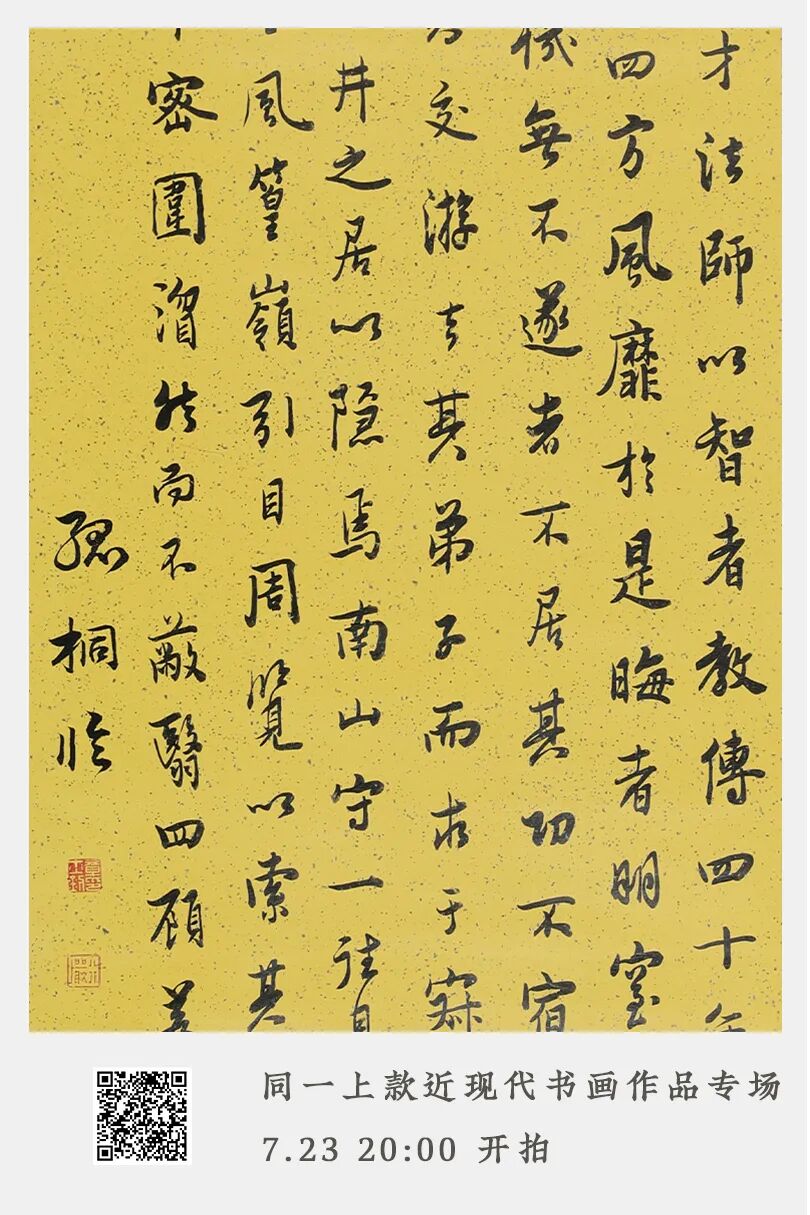 才法師以智者教傳四十年
四方風靡於是晦者明窒
機無不遂者不居其功不宿
交游去其弟子而求于寂
井之居以隐焉南山守一往見
風篁嶺引目周覽以索其
密圍然而不蔽翳四顧
孤桐临
同一上款近现代书画作品专场
7.23 20:00 开拍